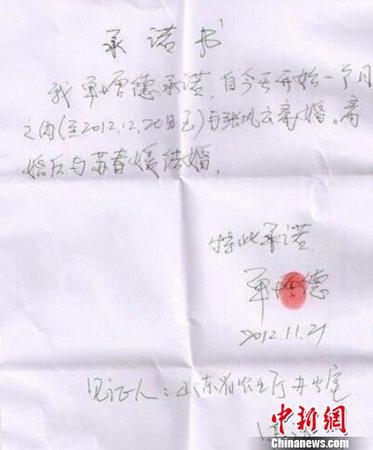 承诺书
我单增德承诺,自今天开始一个月
之内(至2012.12.20日止)与张风云离婚。离
婚后与苏春媛结婚,
特此承诺.
单增德
2012.11.21
见证人:山东省农业厅办公室
中新网
Chinanews.com